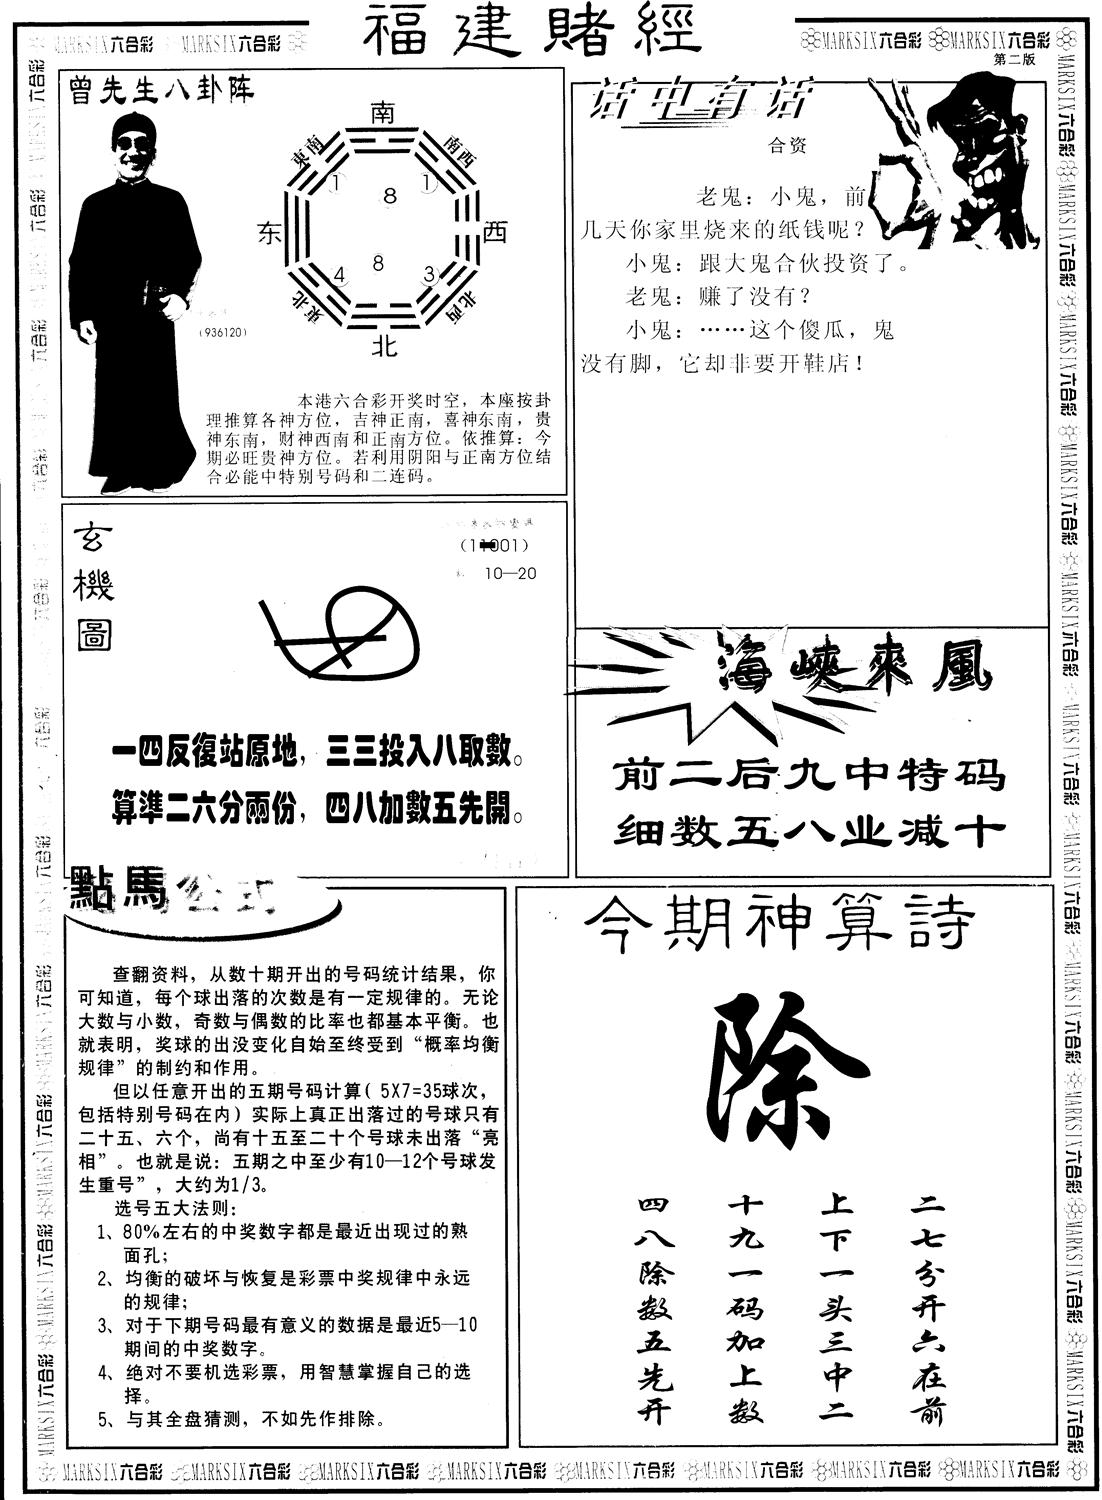 福建賭經
MARKSIX六合彩 MARKSIX六合彩
MARKSIX六合彩 MARKSIX六合彩
第二版
曾先生八卦阵
南
東南
南西
1
8
1
东
西
4
8
3
東北
北西
北
(936120)
本港六合彩开奖时空，本座按卦
理推算各神方位，吉神正南，喜神东南，贵
神东南，财神西南和正南方位。依推算：今
期必旺贵神方位。若利用阴阳与正南方位结
合必能中特别号码和二连码。
话中有话
合资
老鬼：小鬼，前
几天你家里烧来的纸钱呢？
小鬼：跟大鬼合伙投资了。
老鬼：赚了没有？
小鬼：……这个傻瓜，鬼
没有脚，它却非要开鞋店！
玄機圖
10—20
一四反復站原地，三三投入八取數。
算準二六分兩份，四八加數五先開。
海峽來風
前二后九中特码
细数五八业减十
點馬公式
查翻资料，从数十期开出的号码统计结果，你
可知道，每个球出落的次数是有一定规律的。无论
大数与小数，奇数与偶数的比率也都基本平衡。也
就表明，奖球的出没变化自始至终受到“概率均衡
规律”的制约和作用。
但以任意开出的五期号码计算( 5X7=35球次，
包括特别号码在内）实际上真正出落过的号球只有
二十五、六个，尚有十五至二十个号球未出落“亮
相”。也就是说：五期之中至少有10—12个号球发
生重号”，大约为1/3。
选号五大法则：
1、80%左右的中奖数字都是最近出现过的熟
面孔；
2、均衡的破坏与恢复是彩票中奖规律中永远
的规律；
3、对于下期号码最有意义的数据是最近5—10
期间的中奖数字。
4、绝对不要机选彩票，用智慧掌握自己的选
择。
5、与其全盘猜测，不如先作排除。
今期神算詩
除
二七分开六在前
上下一头三中二
十九一码加上数
四八除数五先开
MARKSIX六合彩 MARKSIX六合彩 MARKSIX六合彩 MARKSIX六合彩 MARKSIX六合彩 MARKSIX六合彩 MARKSIX六合彩 MARKSIX六合彩